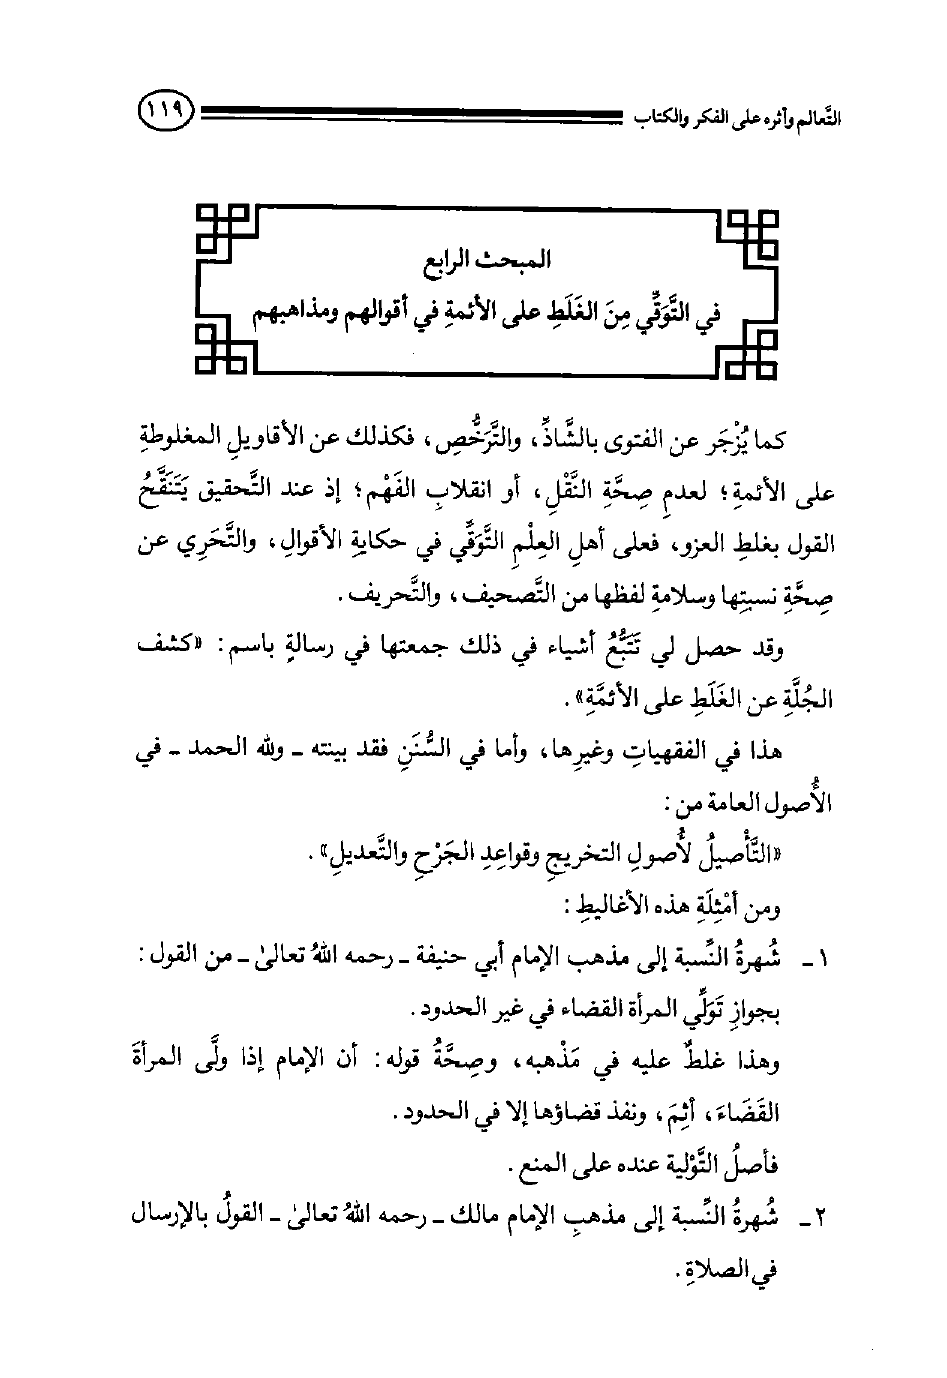 التَّعالم وأثره على الفكر والكتاب ١١٩
المبحث الرابع
في التَّوَقِّي مِنَ الغَلَطِ على الأئمةِ في أقوالهم ومذاهبهم
كما يُزْجَر عن الفتوى بالشَّاذِّ، والتَّرَخُّصِ، فكذلك عن الأقاويلِ المغلوطةِ
على الأئمةِ؛ لعدمِ صِحَّةِ النَّقْلِ، أو انقلابِ الفَهْمِ؛ إذ عند التَّحقيق يَتَنَقَّحُ
القول بغلطِ العزو، فعلى أهلِ العِلْمِ التَّوَقِّي في حكايةِ الأقوالِ، والتَّحَرِي عن
صِحَّةِ نسبتِها وسلامةِ لفظها من التَّصحيف، والتَّحريف.
وقد حصل لي تَتَبُّعُ أشياء في ذلك جمعتها في رسالةٍ باسم: «كشف
الجُلَّةِ عن الغَلَطِ على الأئمَّةِ».
هذا في الفقهياتِ وغيرِها، وأما في السُّنَنِ فقد بينته ـ ولله الحمد ـ في
الأُصول العامة من:
«التَّأصيلُ لأُصولِ التخريجِ وقواعِدِ الجَرْحِ والتَّعديلِ».
ومن أمْثِلَةِ هذه الأغاليطِ:
١ـ شُهرةُ النِّسبة إلى مذهب الإمام أبي حنيفة ـ رحمه اللهُ تعالىٰ ـ من القول:
بجوازِ تَوَلِّي المرأة القضاء في غير الحدود.
وهذا غلطٌ عليه في مَذْهبه، وصِحَّةُ قوله: أن الإمام إذا ولَّى المرأةَ
القَضَاءَ، أثِمَ، ونفذ قضاؤها إلا في الحدود.
فأصلُ التَّوْلية عنده على المنع.
٢ـ شُهرةُ النِّسبة إلى مذهبِ الإمام مالك ـ رحمه اللهُ تعالىٰ ـ القولُ بالإرسال
في الصلاةِ.